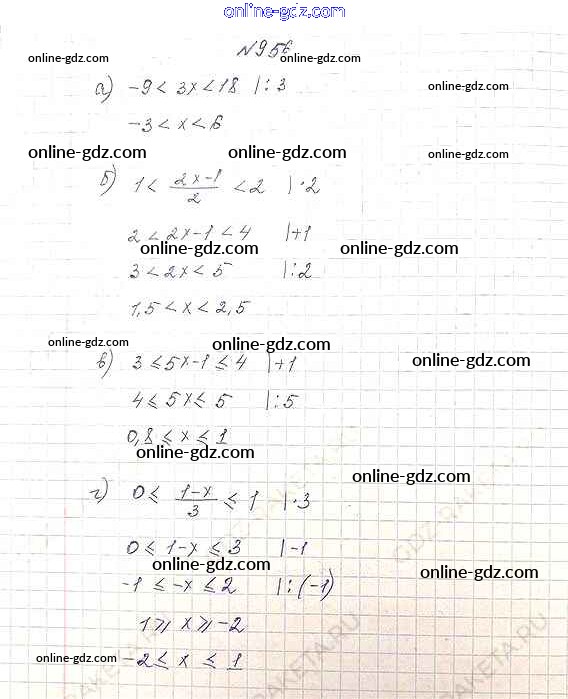 online-gdz.com
№956
online-gdz.com online-gdz.com
а) -9 < 3x < 18 |:3
online-gdz.com
-3 < x < 6
online-gdz.com online-gdz.com online-gdz.com
б) 1 < (2x-1)/2 < 2 |·2
2 < 2x-1 < 4 |+1
online-gdz.com online-gdz.com
3 < 2x < 5 |:2
1,5 < x < 2,5
online-gdz.com online-gdz.com
в) 3 ≤ 5x-1 ≤ 4 |+1
online-gdz.com
4 ≤ 5x ≤ 5 |:5
0,8 ≤ x ≤ 1
online-gdz.com
online-gdz.com
г) 0 ≤ (1-x)/3 ≤ 1 |·3
0 ≤ 1-x ≤ 3 |-1
online-gdz.com online-gdz.com
-1 ≤ -x ≤ 2 |:(-1)
1 ⩾ x ⩾ -2
online-gdz.com -2 ≤ x ≤ 1 online-gdz.com